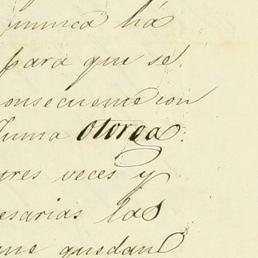 nunca há
para que se
consecuencion
suma otorga
tres veces y
esarias las
que quedan